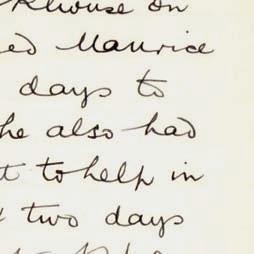 on
Maurice
days to
he also had
to help in
two days